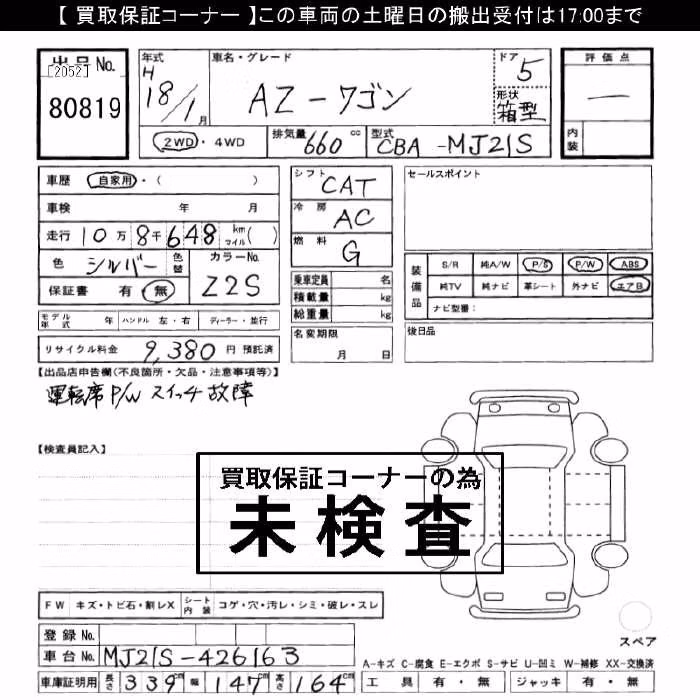 【 買取保証コーナー 】この車両の土曜日の搬出受付は17:00まで
出品No.
[2052]
80819
年式
H
18/1月
車名・グレード
AZ-ワゴン
ドア
5
形状
箱型
評価点
一
内装
2WD・4WD
排気量 660 cc
型式 CBA-MJ21S
車歴 自家用・( )
車検 年 月
走行 10万8千648 km マイル( )
色 シルバー 色替
カラーNo. Z2S
保証書 有・無
シフト CAT
冷房 AC
燃料 G
乗車定員 名
積載量 kg
総重量 kg
セールスポイント
装備品
S/R 純A/W P/S P/W ABS
純TV 純ナビ 革シート 外ナビ エアB
ナビ型番:
モデル年式 年 ハンドル 左・右 ディーラー・並行
リサイクル料金 9,380 円 預託済
名変期限
月 日
後日品
【出品店申告欄(不良箇所・欠品・注意事項等)】
運転席P/Wスイッチ故障
【検査員記入】
買取保証コーナーの為
未検査
FW キズ・トビ石・割レX
シート内装 コゲ・穴・汚レ・シミ・破レ・スレ
登録No.
車台No. MJ21S-426163
車庫証明用 長さ 339cm 幅 147cm 高さ 164cm
スペア
A-キズ C-腐食 E-エクボ S-サビ U-凹ミ W-補修 XX-交換済
工具 有・無 ジャッキ 有・無